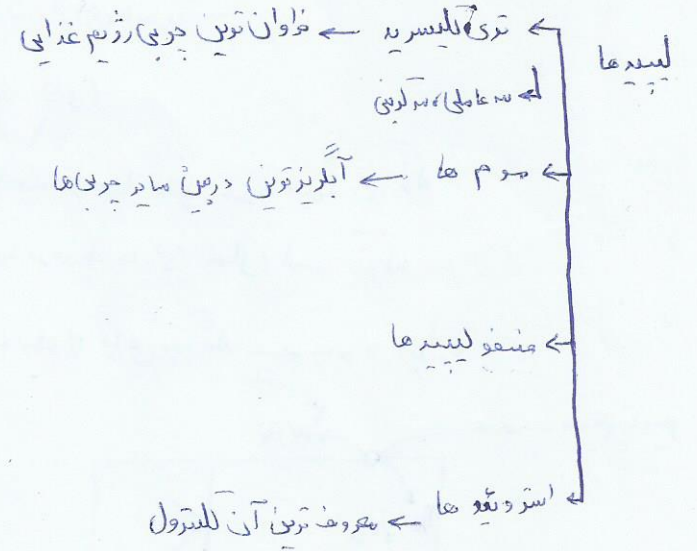 لیپیدها
تری گلیسرید ← فراوان ترین چربی رژیم غذایی
سه عاملی، سه کربنی
موم ها ← آبگریزترین در بین سایر چربی ها
فسفو لیپیدها
استروئید ها ← معروف ترین آن کلسترول